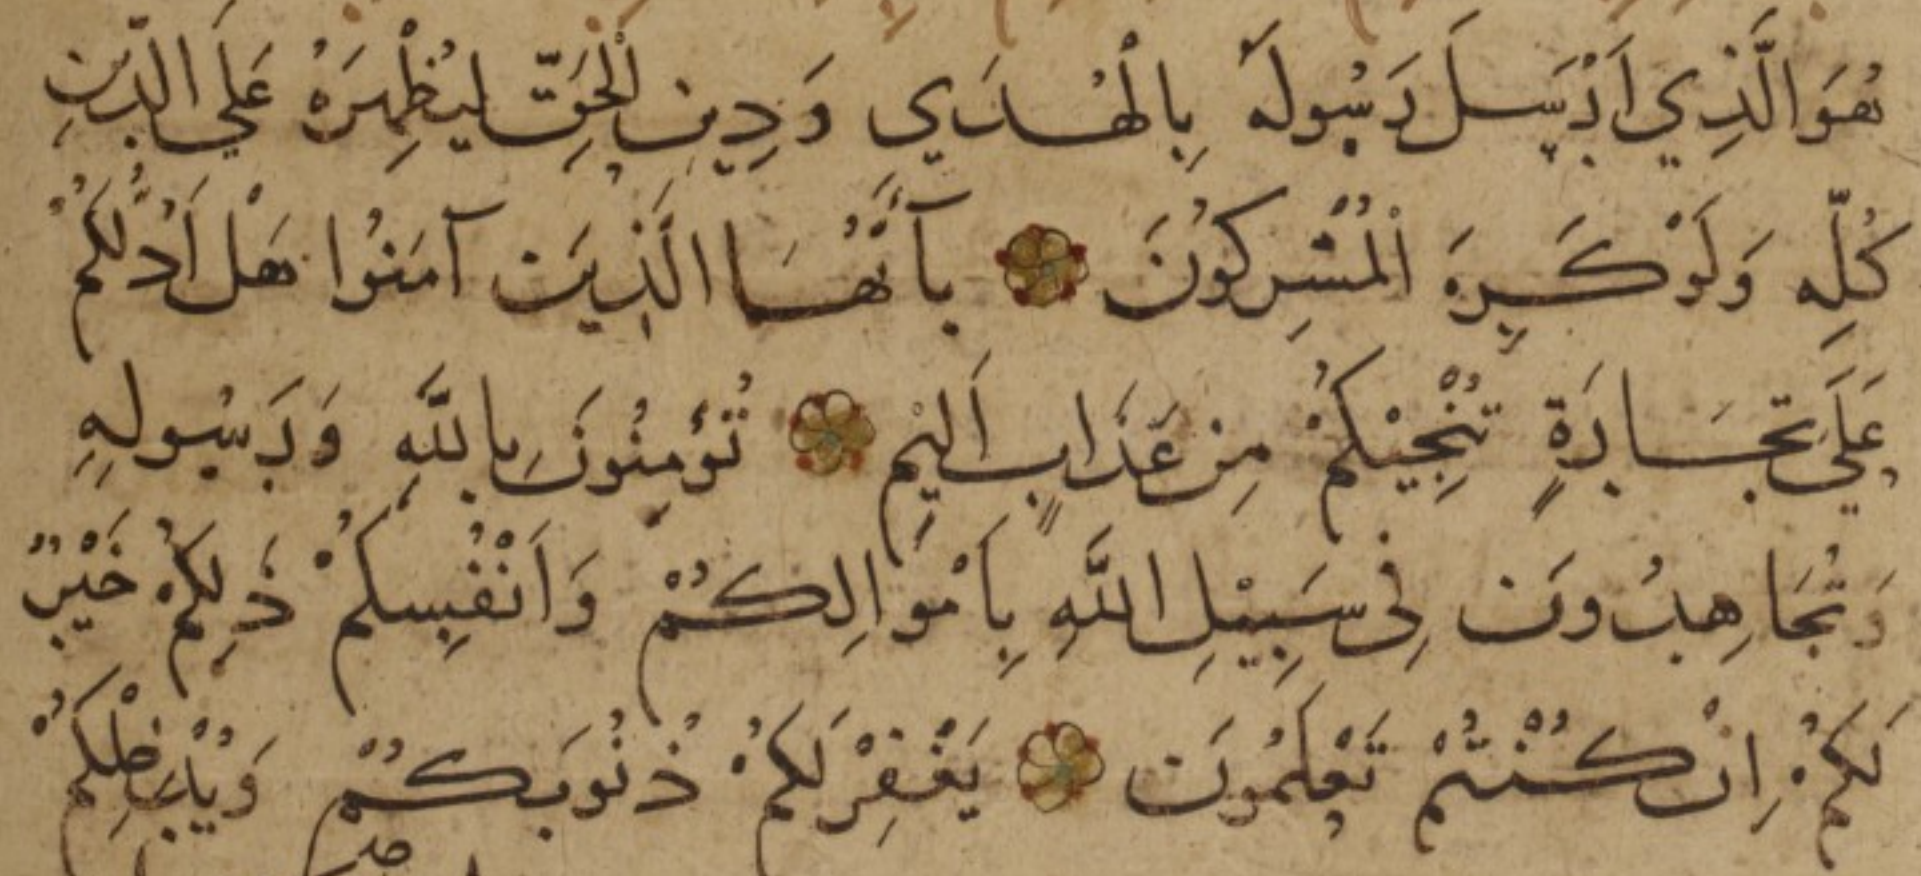 هُوَ الَّذِي اَرْسَلَ رَسُولَهُ بِالْهُدَي وَدِينِ الْحَقِّ لِيُظْهِرَهُ عَلَي الدِّينِ
كُلِّهِ وَلَوْ كَرِهَ الْمُشْرِكُونَ يَآ اَيُّهَا الَّذِينَ آمَنُوا هَلْ اَدُلُّكُمْ
عَلَي تِجَارَةٍ تُنْجِيْكُمْ مِنْ عَذَابٍ اَلِيْمٍ تُؤْمِنُونَ بِاللَّهِ وَرَسُولِهِ
وَتُجَاهِدُونَ فِي سَبِيْلِ اللَّهِ بِاَمْوَالِكُمْ وَاَنْفُسِكُمْ ذَلِكُمْ خَيْرٌ
لَكُمْ اِنْ كُنْتُمْ تَعْلَمُونَ يَغْفِرْ لَكُمْ ذُنُوبَكُمْ وَيُدْخِلْكُمْ